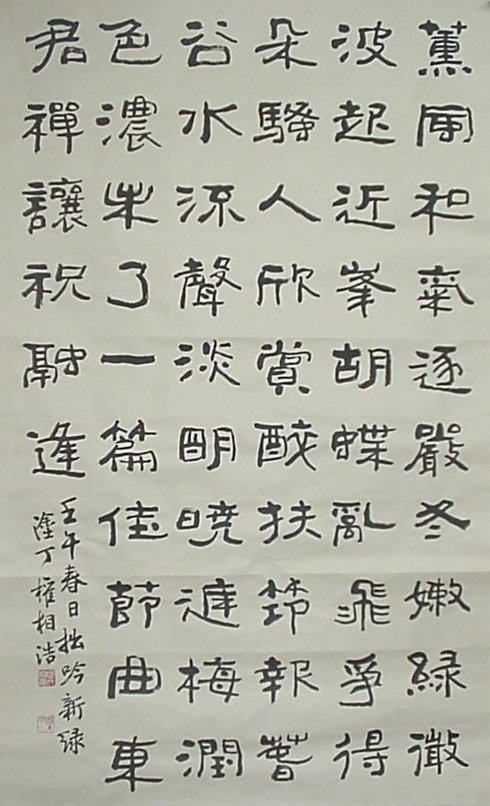 薰風和氣逐嚴冬嫩綠微
波起近峯胡蝶亂飛爭得
朵騷人欣賞醉扶筇報萅
谷水流聲淡明曉梅潤
色濃未了一篇佳節曲東
君禪讓祝融逢
壬午春日拙吟新綠
塗丁權相浩